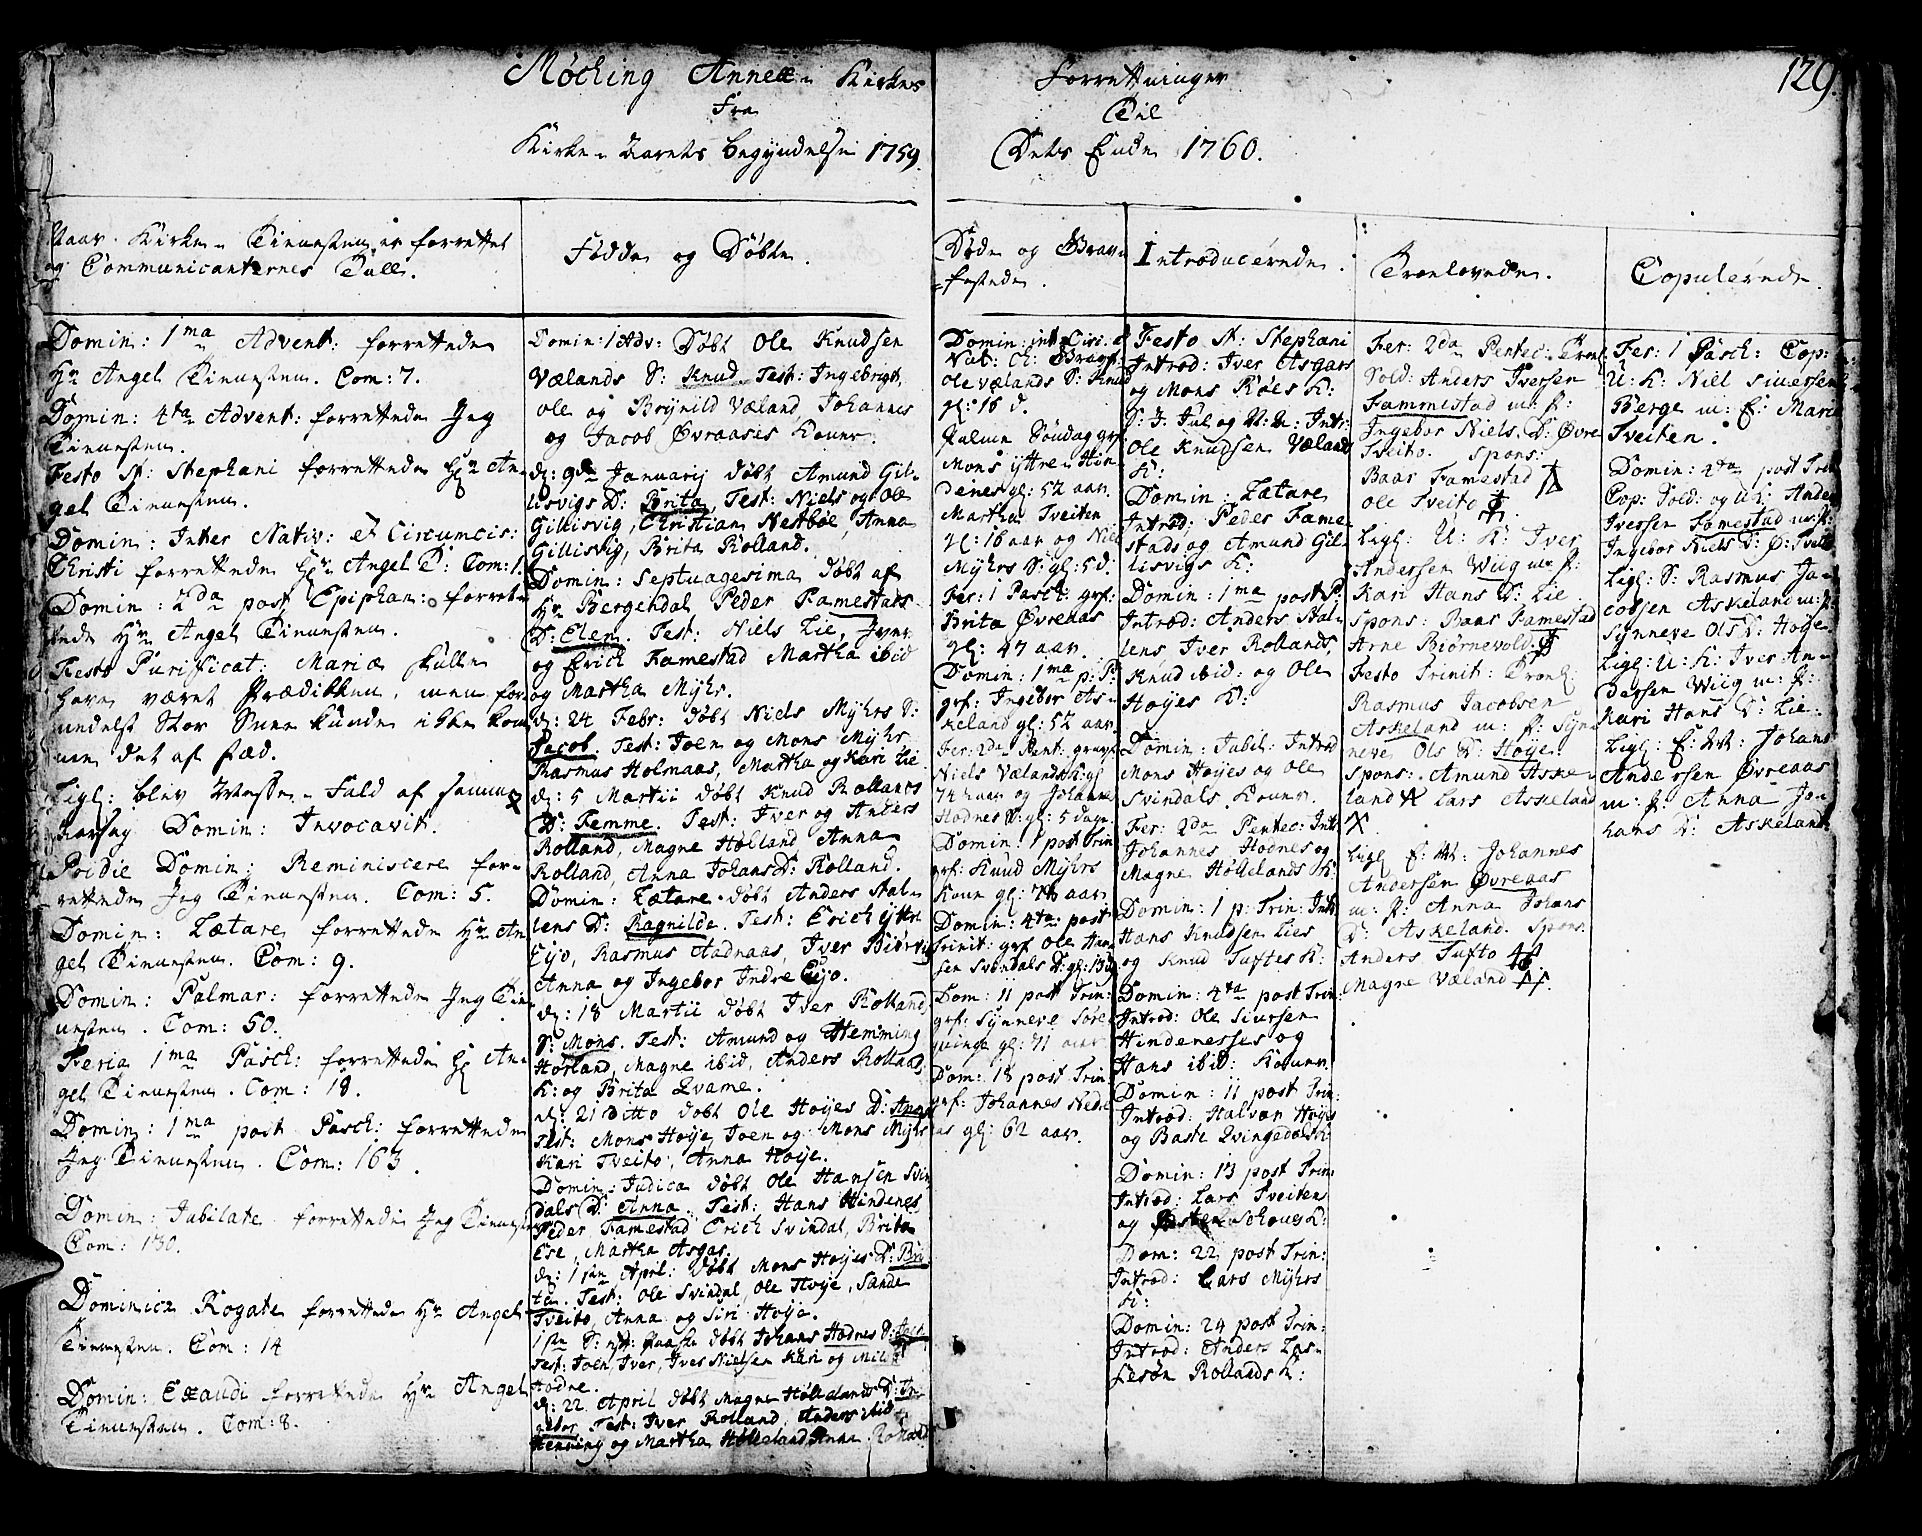 129.
Møching Annex Kirkes Forrettninger
Fra Til
Kirke-Aarets begyndelse 1759. Dets Ende 1760.
Naar Kirke-Tienesten er forrettet
og Communicanternes Tall.
Domin: 1ma Advent: forrettede
Hr Angel Tienesten. Com: 7.
Domin: 4ta Advent: forrettede Jeg
Tienesten.
Festo St: Stephani forrettede Hr An-
gel Tienesten.
Domin: Inter Nativ: et Circumcis:
Christi forrettede Hr Angel T: Com: 1.
Domin: 2da post Epiphan: forret-
tede Hr Angel Tienesten.
Festo Purificat: Mariæ skulle
have været Prædikken, men for-
medelst Stor Snee kunde ikke kom
me det af sted.
Ligl: blev Messe-Fald af samme
Aarsag Domin: Invocavit.
Domin: Reminiscere for-
rettede Jeg Tienesten. Com: 5.
Domin: Lætare forrettede Hr An
gel Tienesten. Com: 9.
Domin: Palmar: forrettede Jeg Tien
nesten. Com: 50.
Feria 1ma Pasch: forrettede Hr An-
gel Tienesten. Com: 18.
Domin: 1ma post Pasch: forrettede
Jeg Tienesten. Com: 163.
Domin: Jubilate forrettede Jeg Tienesten
Com: 130.
Dominica Rogate forrettede Hr Angel
Tienesten. Com: 14
Domin: Exaudi forrettede Hr Angel
Tienesten. Com: 8.
Fødde og Døbte.
Domin: 1 Adv: Døbt Ole Knudsen
Vælands S: Knud. Test: Ingebrigt,
Ole og Brynild Væland, Johannes
og Jacob Øvraases Koner.
d: 9de Januarij døbt Amund Gil-
lisvigs D: Brita, Test: Niels og Ole
Gillisvig, Christian Nestbøe, Anna
Gillisvig, Brita Rolland.
Domin: Septuagesima døbt af
Hr Bergendal Peder Famestads
D: Elen. Test: Niels Lie, Iver
og Erich Famestad Martha ibid
og Martha Myhr.
d: 24 Febr: døbt Niels Myhrs S:
Jacob. Test: Joen og Mons Myhr
Rasmus Holmaas, Martha og Kari Lie
d: 5 Martii døbt Knud Rollands
D: Femme. Test: Iver og Anders
Rolland, Magne Hølland, Anna
Rolland, Anna Johans D: Rolland.
Domin: Lætare døbt Anders Stal-
lens D: Ragnilde. Test: Erich Yttre
Eijo, Rasmus Aadnaas, Iver Biørvig
Anna og Ingebor Indre Eijo.
d: 18 Martii døbt Iver Rolland
S: Mons. Test: Amund og Hemming
Horland, Magne ibid, Anders Rollands
K: og Brita Qvame.
d: 21 Ditto døbt Ole Høyes D: Anna
Test: Mons Høye, Joen og Mons Myhr
Kari Tveito, Anna Høye.
Domin: Judica døbt Ole Hansen Svin
dals D: Anna. Test: Hans Hindenes
Peder Famestad Erich Svindal, Brita
Ese, Martha Asgar.
d: 1ste April: døbt Mons Høyes D: Bri
ta. Test: Ole Svindal Ole Høye, Sande
Tveito, Anna og Siri Høye.
døbt Johans Hodnes D:
Test: Joen, Iver, Iver Nielsen Kari og
Hodne.
d: 22 April døbt Magne Høllelands D: In
gebor Test: Iver Rolland, Anders ibid
Henning og Martha Hølleland Anna Rolland
Døde og Begrav-
festede.
Domin: int: Circ: et
Nat: Ch: Gravf:
Ole Vælands S: Knud
gl: 16 d.
Palme Søndag grf:
Mons Yttre-Hin
denes gl: 52 aar.
Martha Tveiten
gl: 16 aar og Niels
Myhrs S: gl: 5 d.
Fer: 1 Pasch: grf:
Brita Øvreaas
gl: 47 aar.
Domin: 1ma p: P:
grf: Ingebor As-
keland gl: 52 aar.
Fer: 2da Pent: gravf:
Niels Vælands K: gl:
74 aar og Johannes
Hodnes D: gl: 5 dage
Domin: 1 post Trin
grf: Knud Myhrs
Kone gl: 78 aar.
Domin: 4ta post
Trinit: grf: Ole Han
sen Svindals D: gl: 13
Dom: 11 post Trin:
grf: Synneve Søre
gl: 71 aar
Dom: 18 post Trin
grf: Johannes Nedre
aas gl: 62 aar.
Introducerede.
Festo St: Stephani
Introd: Iver Asgars
og Mons Røles K:
Ole Knudsen Væland
K:
Domin: Lætare
Introd: Peder Fame-
stads og Amund Gil-
lisvigs K:
Domin: 1ma post P:
Introd: Anders Stal-
lens Iver Rollands,
Knud ibid: og Ole
Høyes K:
Domin: Jubil: Introd
Mons Høyes og Ole
Svindals Koner.
Fer: 2da Pentec: Intr
Johannes Hodnes og
Magne Høllelands K:
Domin: 1 p: Trin: Intr
Hans Knudsen Lies
og Knud Tuftes K:
Domin: 4ta post Trin:
Introd: Ole Siursen
Hindenesses og
Hans ibid: Koner.
Domin: 11 post Trin:
Introd: Halvor Høyes
og Baste Qvingedals K:
Domin: 13 post Trin:
Introd: Lars Tveitens
og Schoues K:
Dom: 22 post Trin:
Introd: Lars Myhrs
K:
Domin: 24 post Trin:
Introd: Anders Las-
sesøn Rollands K:
Troelovede.
Fer: 2da Pentec: Troel:
Sold: Anders Iversen
Fammestad m: P:
Ingebor Niels D: Øvre
Tveito. Spons:
Baar Famestad
Ole Tveito.
Ligl: U: K: Iver
Andersen Wiig m: P:
Kari Hans D: Lie
Spons: Baar Famestad
Arne Biørnevold.
Festo Trinit: Troel:
Rasmus Jacobsen
Askeland m: P: Syn-
neve Ols D: Høye.
Spons: Amund Aske-
land Lars Askeland
Ligl: E: M: Johannes
Andersen Øvreaas
m: P: Anna Johans
D: Askeland. Spons:
Anders Tufto
Magne Væland
Copulerede.
Fer: 1 Pasch: Cop:
U: K: Niel Siversen
Berge m: E: Marta
Tveiten.
Domin: 4da post Trin
Cop: Sold: og U: K: Anders
Iversen Famestad m: P:
Ingebor Niels D: Ø: Tveit
Ligl: S: Rasmus Ja-
cobsen Askeland m: P:
Synneve Ols D: Høye
Ligl: U: K: Iver An-
dersen Wiig m: P:
Kari Hans D: Lie.
Ligl: E: M: Johans
Andersen Øvreaas
m: P: Anna Jo-
hans D: Askeland